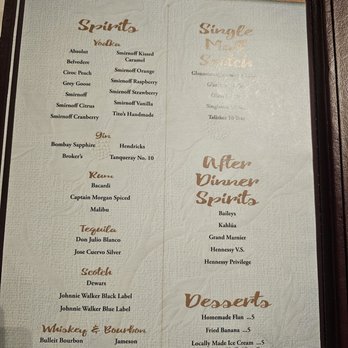 Spirits
Vodka
Absolut
Belvedere
Ciroc Peach
Grey Goose
Smirnoff
Smirnoff Citrus
Smirnoff Cranberry
Smirnoff Kissed
Caramel
Smirnoff Orange
Smirnoff Raspberry
Smirnoff Strawberry
Smirnoff Vanilla
Tito's Handmade
Gin
Bombay Sapphire
Broker's
Hendricks
Tanqueray No. 10
Rum
Bacardi
Captain Morgan Spiced
Malibu
Tequila
Don Julio Blanco
Jose Cuervo Silver
Scotch
Dewars
Johnnie Walker Black Label
Johnnie Walker Blue Label
Whiskey & Bourbon
Bulleit Bourbon
Jameson
Single
Malt
Scotch
Talisker 10
After
Dinner
Spirits
Baileys
Kahlúa
Grand Marnier
Hennessy V.S.
Hennessy Privilege
Desserts
Homemade Flan ...5
Fried Banana ...5
Locally Made Ice Cream ...5